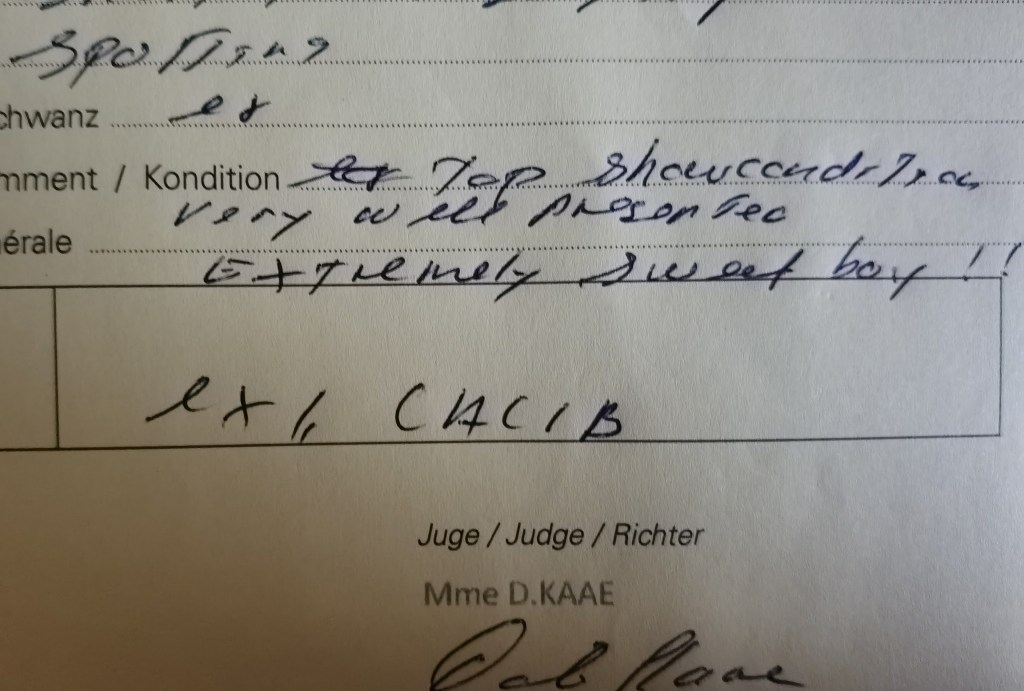 Spotting
chwanz ex
mment / Kondition Top showcondition
very well presented
érale
Extremely sweet boy!!
ex 1, CACIB
Juge / Judge / Richter
Mme D.KAAE
Kaae